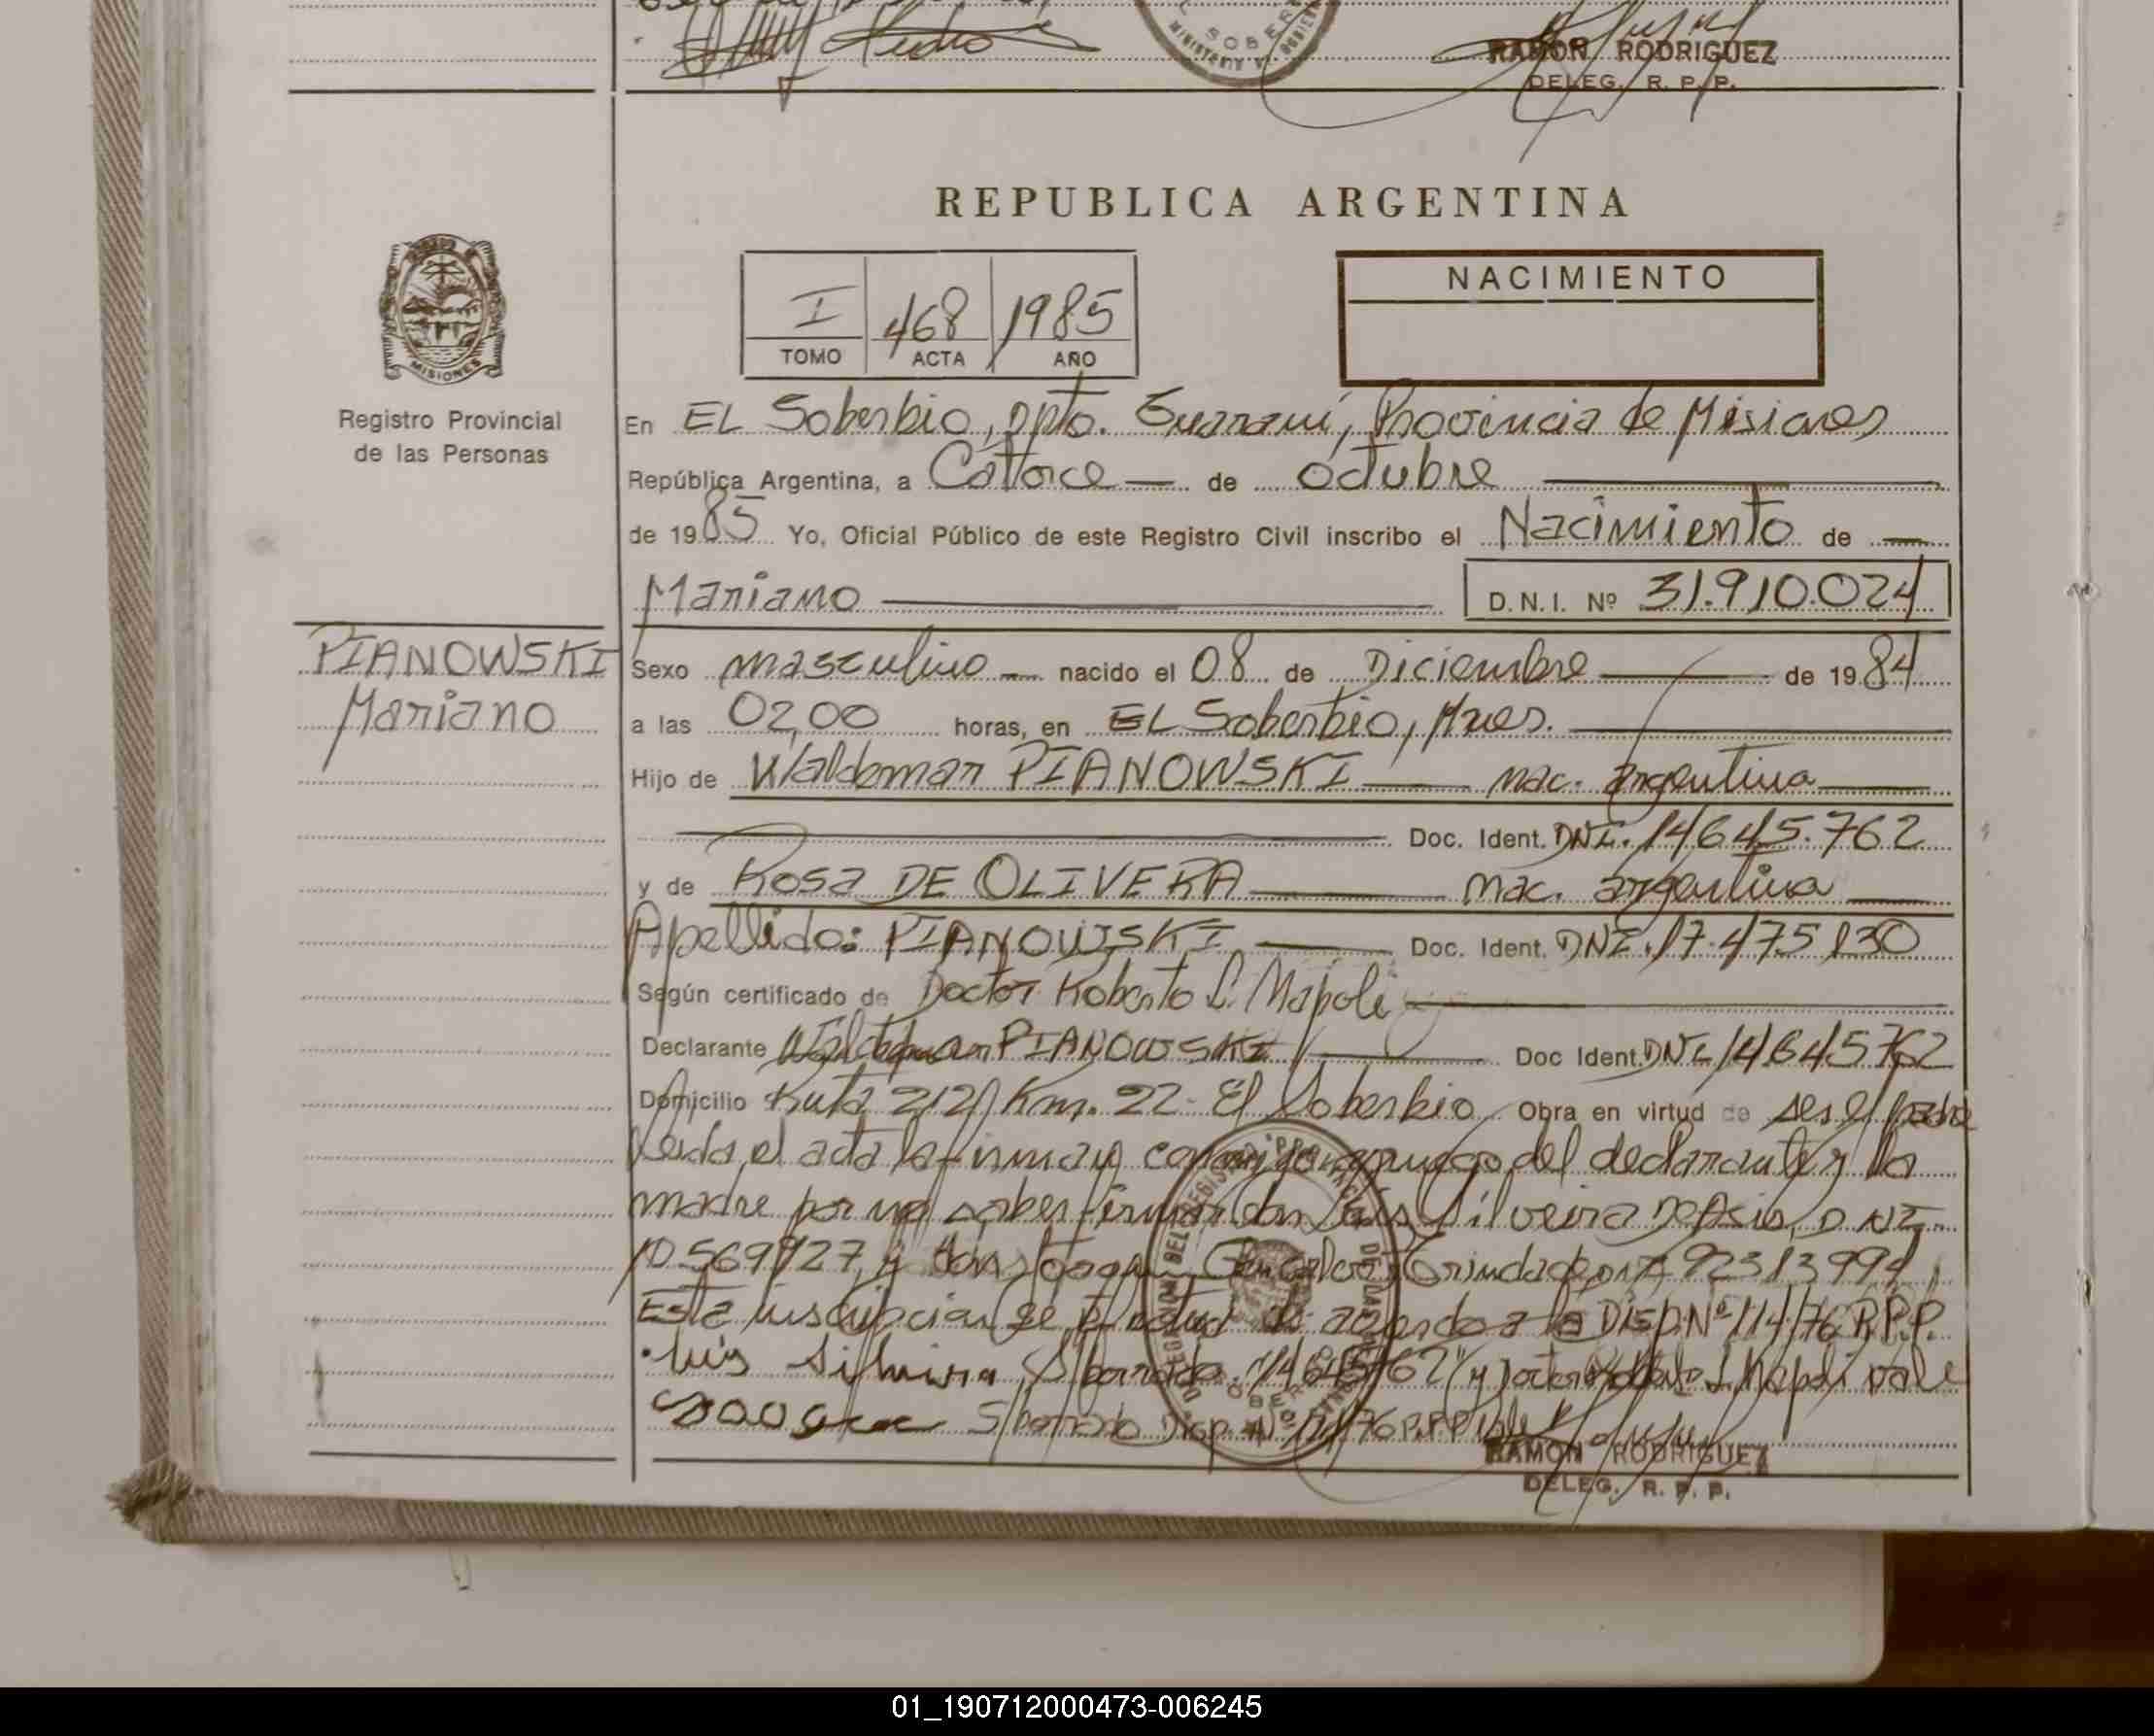 SOBER
RAMON RODRIGUEZ
DELEG. R. P. P.
REPUBLICA ARGENTINA
NACIMIENTO
I 468 1985
TOMO ACTA AÑO
MISIONES
Registro Provincial
de las Personas
En EL Soberbio, Dpto. Guaraní, Provincia de Misiones
República Argentina, a Catorce — de octubre
de 1985 Yo, Oficial Público de este Registro Civil inscribo el Nacimiento de —
Mariano D.N.I. Nº 31.910.024
PIANOWSKI
Mariano
Sexo masculino — nacido el 08 de Diciembre — de 1984
a las 02,00 horas, en EL Soberbio, Mnes.
Hijo de Waldemar PIANOWSKI — nac. argentina
Doc. Ident. DNI. 14645.762
y de Rosa DE OLIVERA — nac. argentina
Apellido: PIANOWSKI — Doc. Ident. DNI. 17.475130
Según certificado de Doctor Roberto L. Napoli
Declarante Waldemar PIANOWSKI — Doc Ident. DNI 14645762
Domicilio Ruta 212 Km. 22 El Soberbio Obra en virtud de ser el padre
Leida el acta la firman conmigo a ruego del declarante y la
madre por no saber firmar don Luis Silveira DeAsis, D NI
10569927 y don Joaquin Trindade 92313994
Esta inscripción se de acuerdo a la DISP. Nº 114/76 R.P.P.
Luis Silveira S/borrado: "14645762" y Doctor Roberto L Napoli vale
S/borrado Disp. Nº 114/76 R.P.P. vale
RAMON RODRIGUEZ
DELEG. R. P. P.
01_190712000473-006245